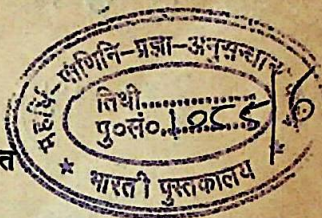 महर्षि-पाणिनि-प्रज्ञा-अनुसन्धान
तिथी..............
पु०सं०.1055/6
* भारती पुस्तकालय *
त